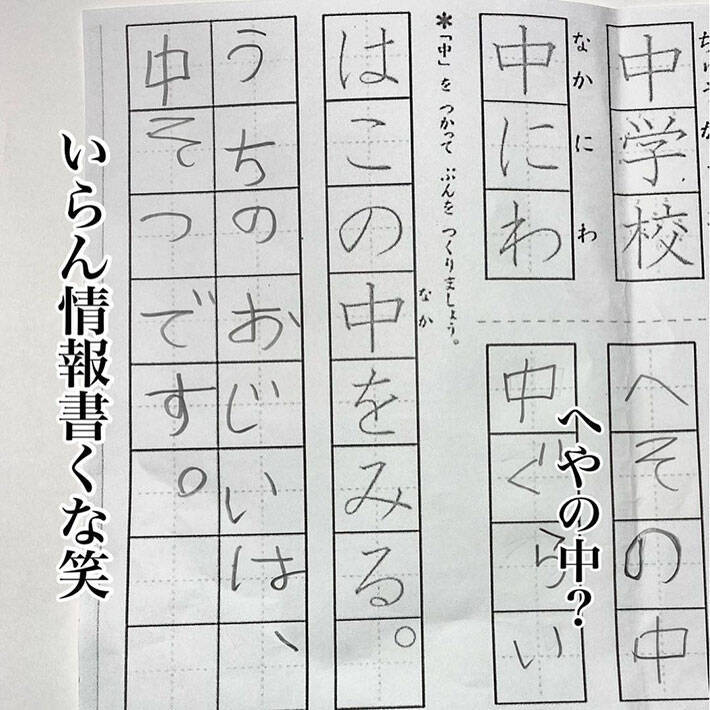 中学校
なかにわ
中にわ
へその中
へやの中?
中ぐらい
*「中」を つかって ぶんを つくりましょう。
なか
はこの中をみる。
うちのおじいは、
中そつです。
いらん情報書くな笑